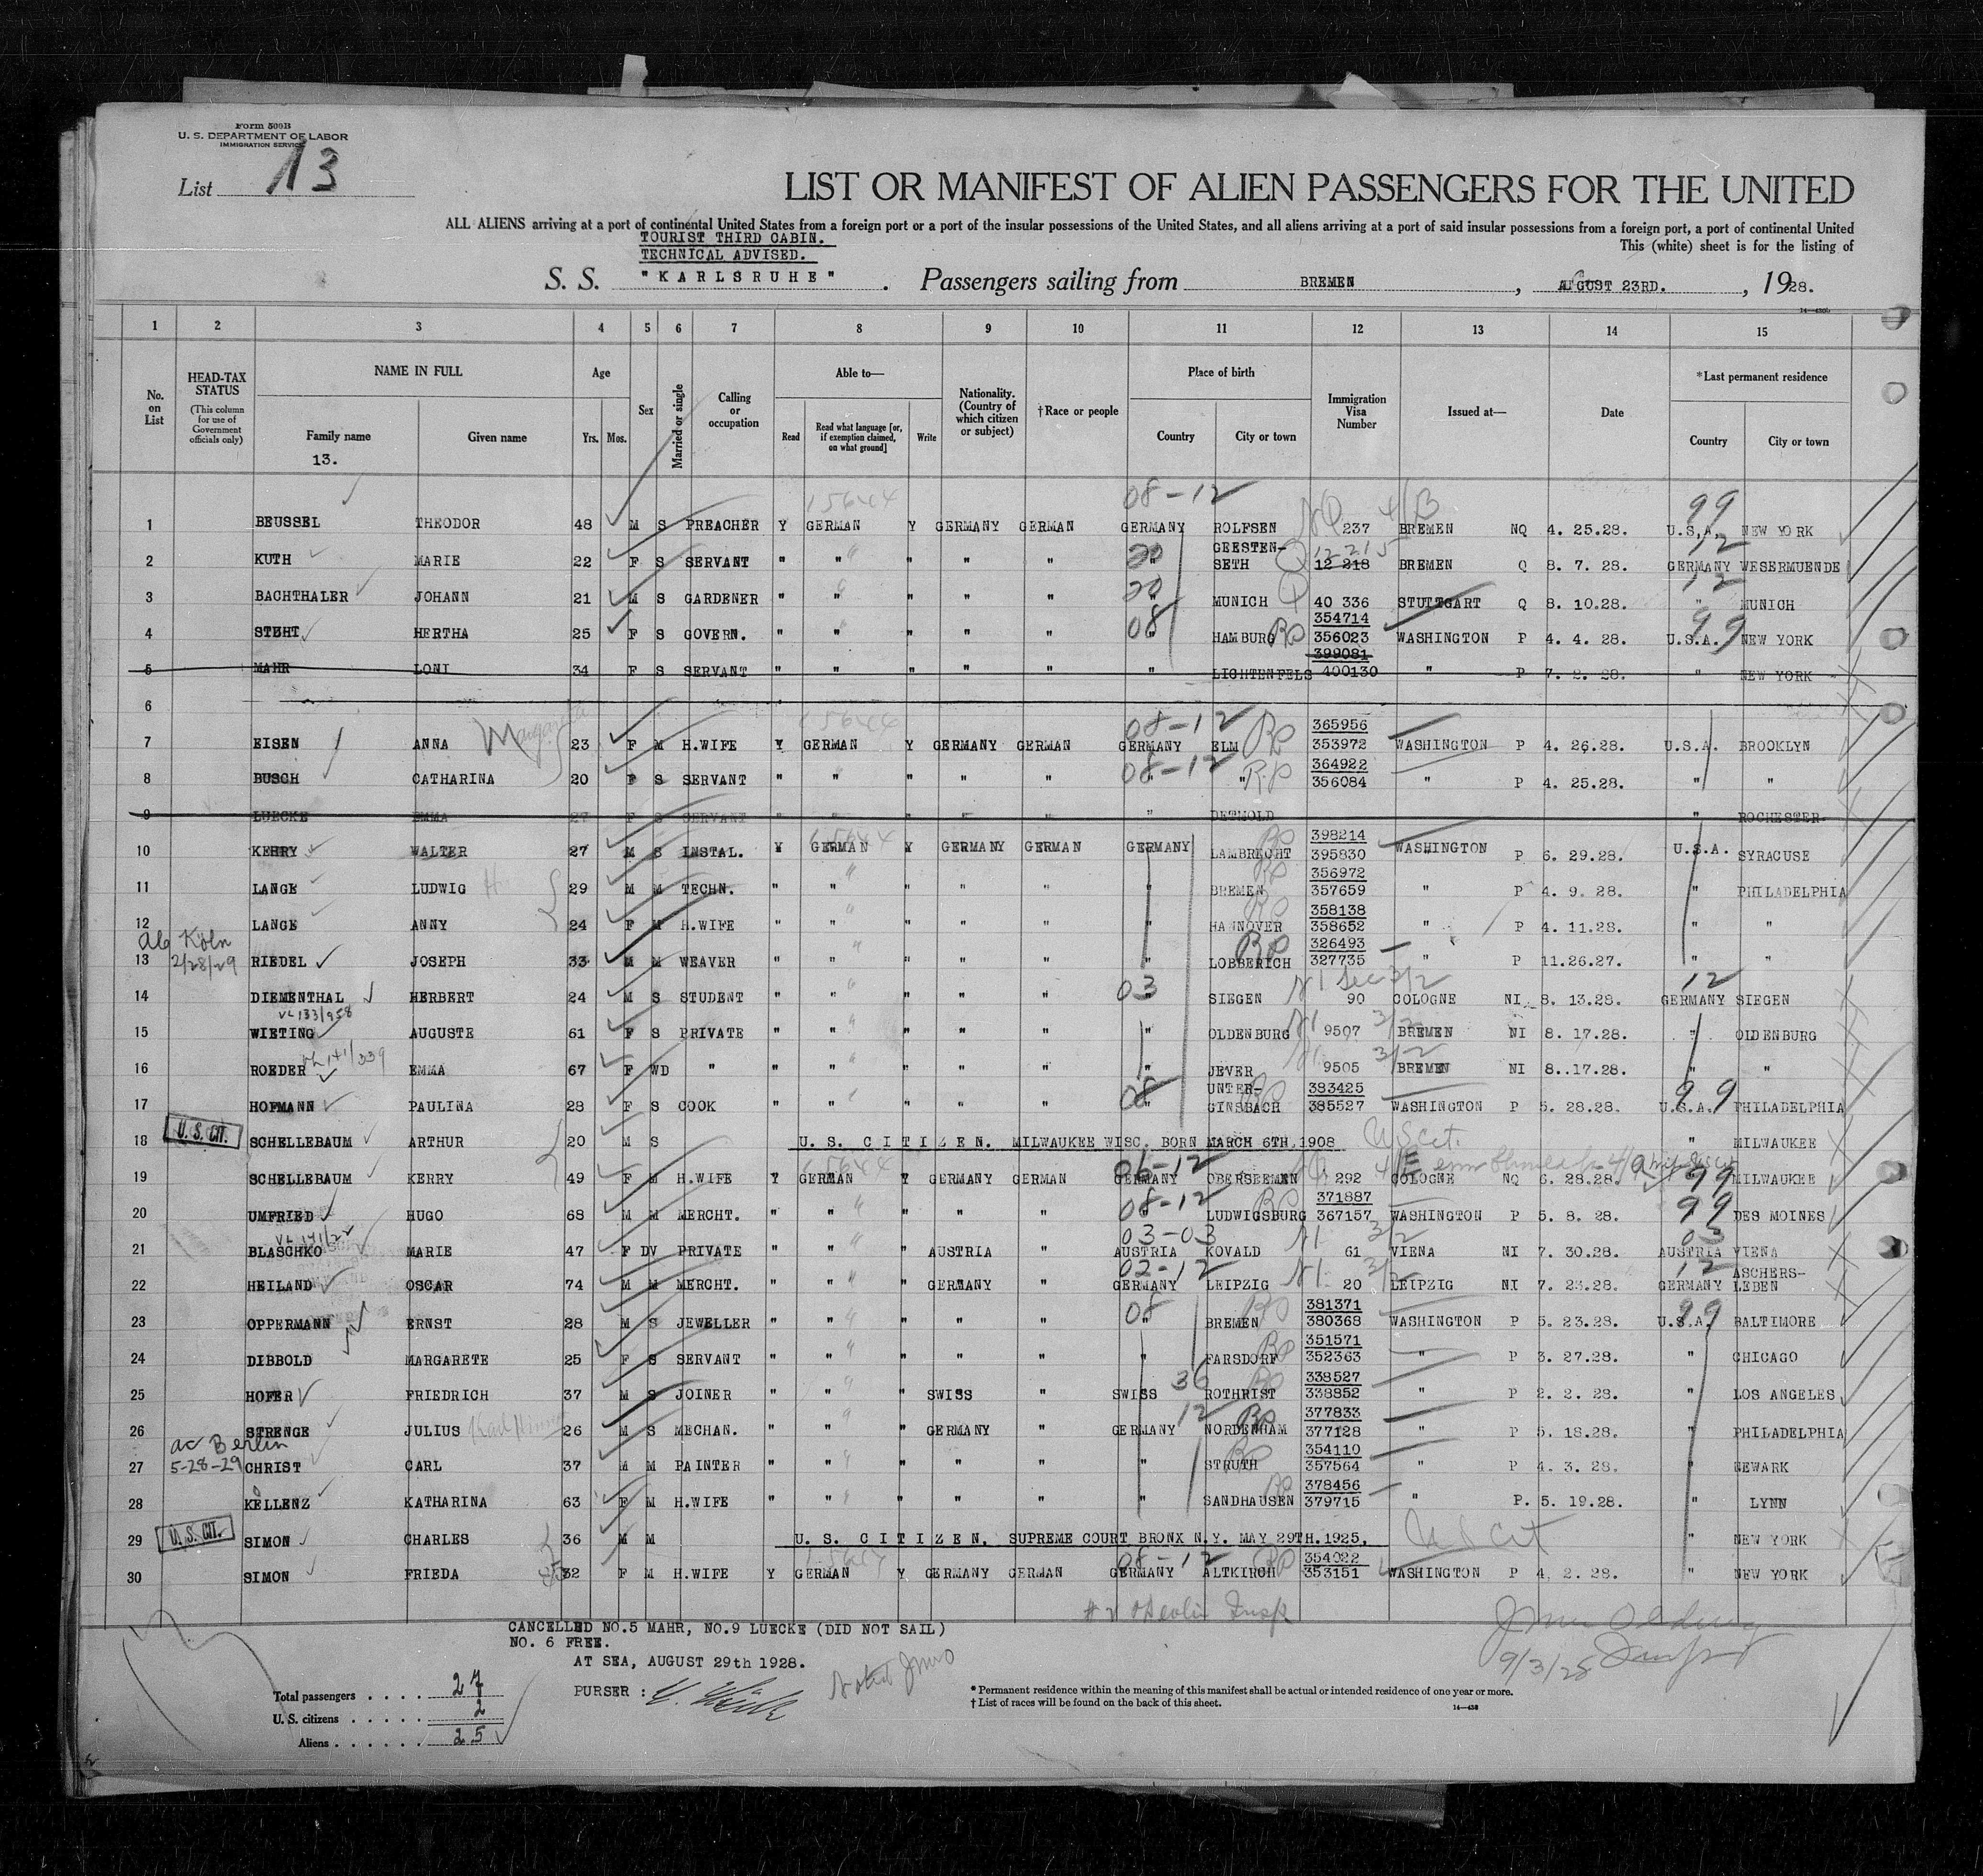 Form 500B
U. S. DEPARTMENT OF LABOR
IMMIGRATION SERVICE
List 13
LIST OR MANIFEST OF ALIEN PASSENGERS FOR THE UNITED
ALL ALIENS arriving at a port of continental United States from a foreign port or a port of the insular possessions of the United States, and all aliens arriving at a port of said insular possessions from a foreign port, a port of continental United
TOURIST THIRD CABIN.
This (white) sheet is for the listing of
TECHNICAL ADVISED.
S. S. "KARLSRUHE" . Passengers sailing from BREMEN , AUGUST 23RD. , 1928.
1 2 3 4 5 6 7 8 9 10 11 12 13 14 15
No. on List
HEAD-TAX STATUS (This column for use of Government officials only)
NAME IN FULL
Family name Given name
13.
Age
Yrs. Mos.
Sex
Married or single
Calling or occupation
Able to—
Read Read what language [or, if exemption claimed, on what ground] Write
Nationality. (Country of which citizen or subject)
†Race or people
Place of birth
Country City or town
Immigration Visa Number
Issued at—
Date
*Last permanent residence
Country City or town
15644 08-12 99
1 BEUSSEL THEODOR 48 M S PREACHER Y GERMAN Y GERMANY GERMAN GERMANY ROLFSEN NQ 237 4/B BREMEN NQ 4. 25.28. U.S.A. NEW YORK
2 KUTH MARIE 22 F S SERVANT " " " " " 20 " GEESTEN-SETH Q 12 215 12 218 BREMEN Q 8. 7. 28. 12 GERMANY WESERMUENDE
3 BACHTHALER JOHANN 21 M S GARDENER " " " " " 20 " MUNICH Q 40 336 STUTTGART Q 8. 10.28. 12 " MUNICH
4 STEHT HERTHA 25 F S GOVERN. " " " " " 08 " HAMBURG RP 354714 356023 WASHINGTON P 4. 4. 28. 99 U.S.A. NEW YORK
5 MAHR LONI 34 F S SERVANT " " " " " " LIGHTENFELS 399081 400130 " P 7. 2. 28. " NEW YORK
6
7 EISEN ANNA Margareta 23 F M H.WIFE Y GERMAN 15644 Y GERMANY GERMAN 08-12 GERMANY ELM RP 365956 353972 WASHINGTON P 4. 26.28. U.S.A. BROOKLYN
8 BUSCH CATHARINA 20 F S SERVANT " " " " " 08-12 " " RP 364922 356084 " P 4. 25.28. " "
9 LUECKE EMMA 27 F S SERVANT " " " " " " DETMOLD ROCHESTER
10 KERRY WALTER 27 M S INSTAL. Y GERMAN 15644 Y GERMANY GERMAN GERMANY LAMBRECHT RP 398214 395830 WASHINGTON P 6. 29.28. U.S.A. SYRACUSE
11 LANGE LUDWIG H. 29 M M TECHN. " " " " " " BREMEN RP 356972 357659 " P 4. 9. 28. " PHILADELPHIA
12 LANGE ANNY 24 F M H.WIFE " " " " " " HANNOVER RP 358138 358652 " P 4. 11.28. " "
ab Köln
13 2/28/29 RIEDEL JOSEPH 33 M M WEAVER " " " " " " LOBBERICH RP 326493 327735 " P 11.26.27. " "
14 DIEMENTHAL HERBERT 24 M S STUDENT " " " " " 03 SIEGEN NI Sec 3/2 90 COLOGNE NI 8. 13.28. 12 GERMANY SIEGEN
VL 133/958
15 WIETING AUGUSTE 61 F S PRIVATE " " " " " " OLDENBURG NI 9507 3/2 BREMEN NI 8. 17.28. " OLDENBURG
16 ROEDER EMMA 67 F WD " " " " " " " JEVER NI 9505 3/2 BREMEN NI 8..17.28. " "
17 HOFMANN PAULINA 28 F S COOK " " " " " 08 " UNTER-GINSBACH RP 383425 385527 WASHINGTON P 5. 28.28. 99 U.S.A. PHILADELPHIA
U. S. CIT.
18 SCHELLEBAUM ARTHUR 20 M S U. S. CITIZEN. MILWAUKEE WISC. BORN MARCH 6TH,1908 US Cit. " MILWAUKEE
19 SCHELLEBAUM KERRY 49 F M H.WIFE Y GERMAN 15644 Y GERMANY GERMAN 06-12 GERMANY OBERSEEMEN NQ 292 COLOGNE NQ 6. 28.28. 99 MILWAUKEE
20 UMFRIED HUGO 68 M M MERCHT. " " " " " 08-12 " LUDWIGSBURG RP 371887 367157 WASHINGTON P 5. 8. 28. 99 DES MOINES
VL 141/22
21 BLASCHKO MARIE 47 F DV PRIVATE " " " AUSTRIA " 03-03 AUSTRIA KOVALD NI 61 3/2 VIENA NI 7. 30.28. 03 AUSTRIA VIENA
22 HEILAND OSCAR 74 M M MERCHT. " " " GERMANY " 02-12 GERMANY LEIPZIG NI 20 3/2 LEIPZIG NI 7. 23.28. 12 GERMANY ASCHERS-LEBEN
23 OPPERMANN ERNST 28 M S JEWELLER " " " " " 08 " BREMEN RP 381371 380368 WASHINGTON P 5. 23.28. 99 U.S.A. BALTIMORE
24 DIBBOLD MARGARETE 25 F S SERVANT " " " " " " FARSDORF RP 351571 352363 " P 3. 27.28. " CHICAGO
25 HOFER FRIEDRICH 37 M S JOINER " " " SWISS " SWISS 36 ROTHRIST RP 338527 338852 " P 2. 2. 28. " LOS ANGELES
26 STRENGE JULIUS 26 M S MECHAN. " " " GERMANY " GERMANY 12 NORDENHAM RP 377833 377128 " P 5. 18.28. " PHILADELPHIA
ac Berlin
27 5-28-29 CHRIST CARL 37 M M PAINTER " " " " " " STRUTH RP 354110 357564 " P 4. 3. 28. " NEWARK
28 KELLENZ KATHARINA 63 F M H.WIFE " " " " " " SANDHAUSEN RP 378456 379715 " P. 5. 19.28. " LYNN
U. S. CIT.
29 SIMON CHARLES 36 M M U. S. CITIZEN. SUPREME COURT BRONX N.Y. MAY 29TH.1925, US Cit " NEW YORK
30 SIMON FRIEDA 32 F M H.WIFE Y GERMAN Y GERMANY GERMAN 08-12 GERMANY ALTKIRCH RP 354022 353151 WASHINGTON P 4. 2. 28. " NEW YORK
CANCELLED NO.5 MAHR, NO.9 LUECKE (DID NOT SAIL)
NO. 6 FREE.
AT SEA, AUGUST 29th 1928.
PURSER :
9/3/28
Total passengers . . . . 27
U. S. citizens . . . . . 2
Aliens . . . . . . 25
* Permanent residence within the meaning of this manifest shall be actual or intended residence of one year or more.
† List of races will be found on the back of this sheet.
14—438